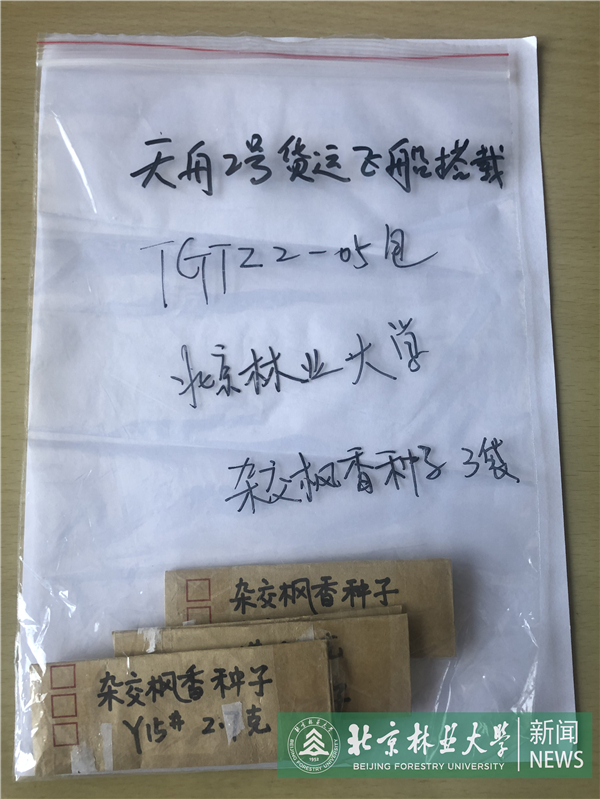 天舟2号货运飞船搭载
TGTZ2-05包
北京林业大学
杂交枫香种子 3袋
杂交枫香种子
杂交枫香种子
Y15# 2. 克
北京林业大学
BEIJING FORESTRY UNIVERSITY
1952
新闻
NEWS